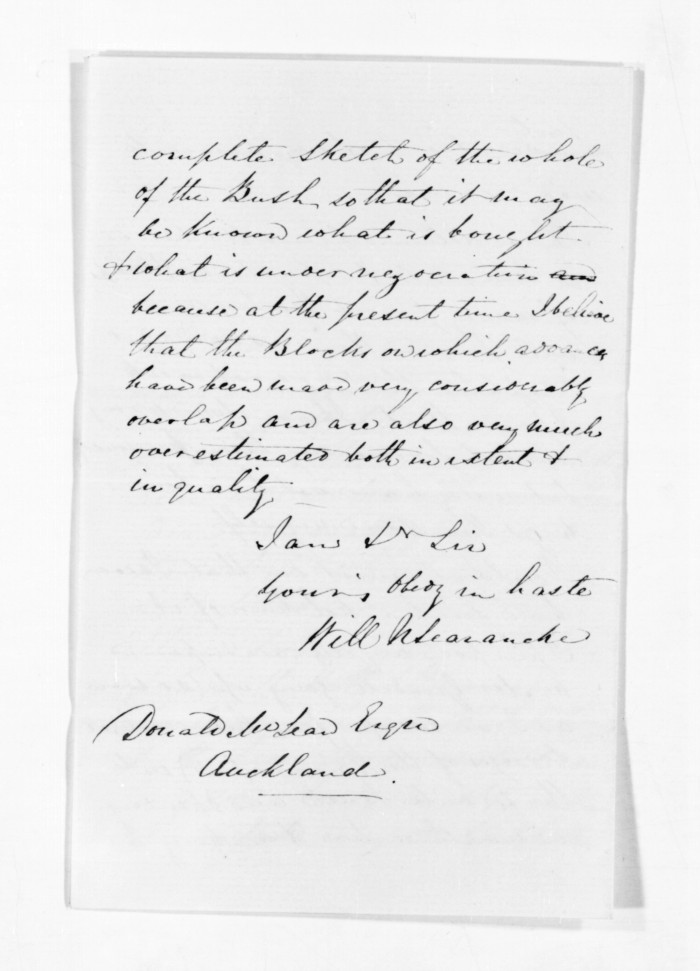 complete Sketch of the whole
of the Bush, so that it may
be Known what is bought
& what is under negociation and
because at the present time I believe
that the Blocks on which advances
have been made very considerably
overlap and are also very much
overestimated both in extent &
in quality
I am Dr Sir
Yours Obedy in haste
Will N Searancke
Donald McLean Esqre
Auckland.